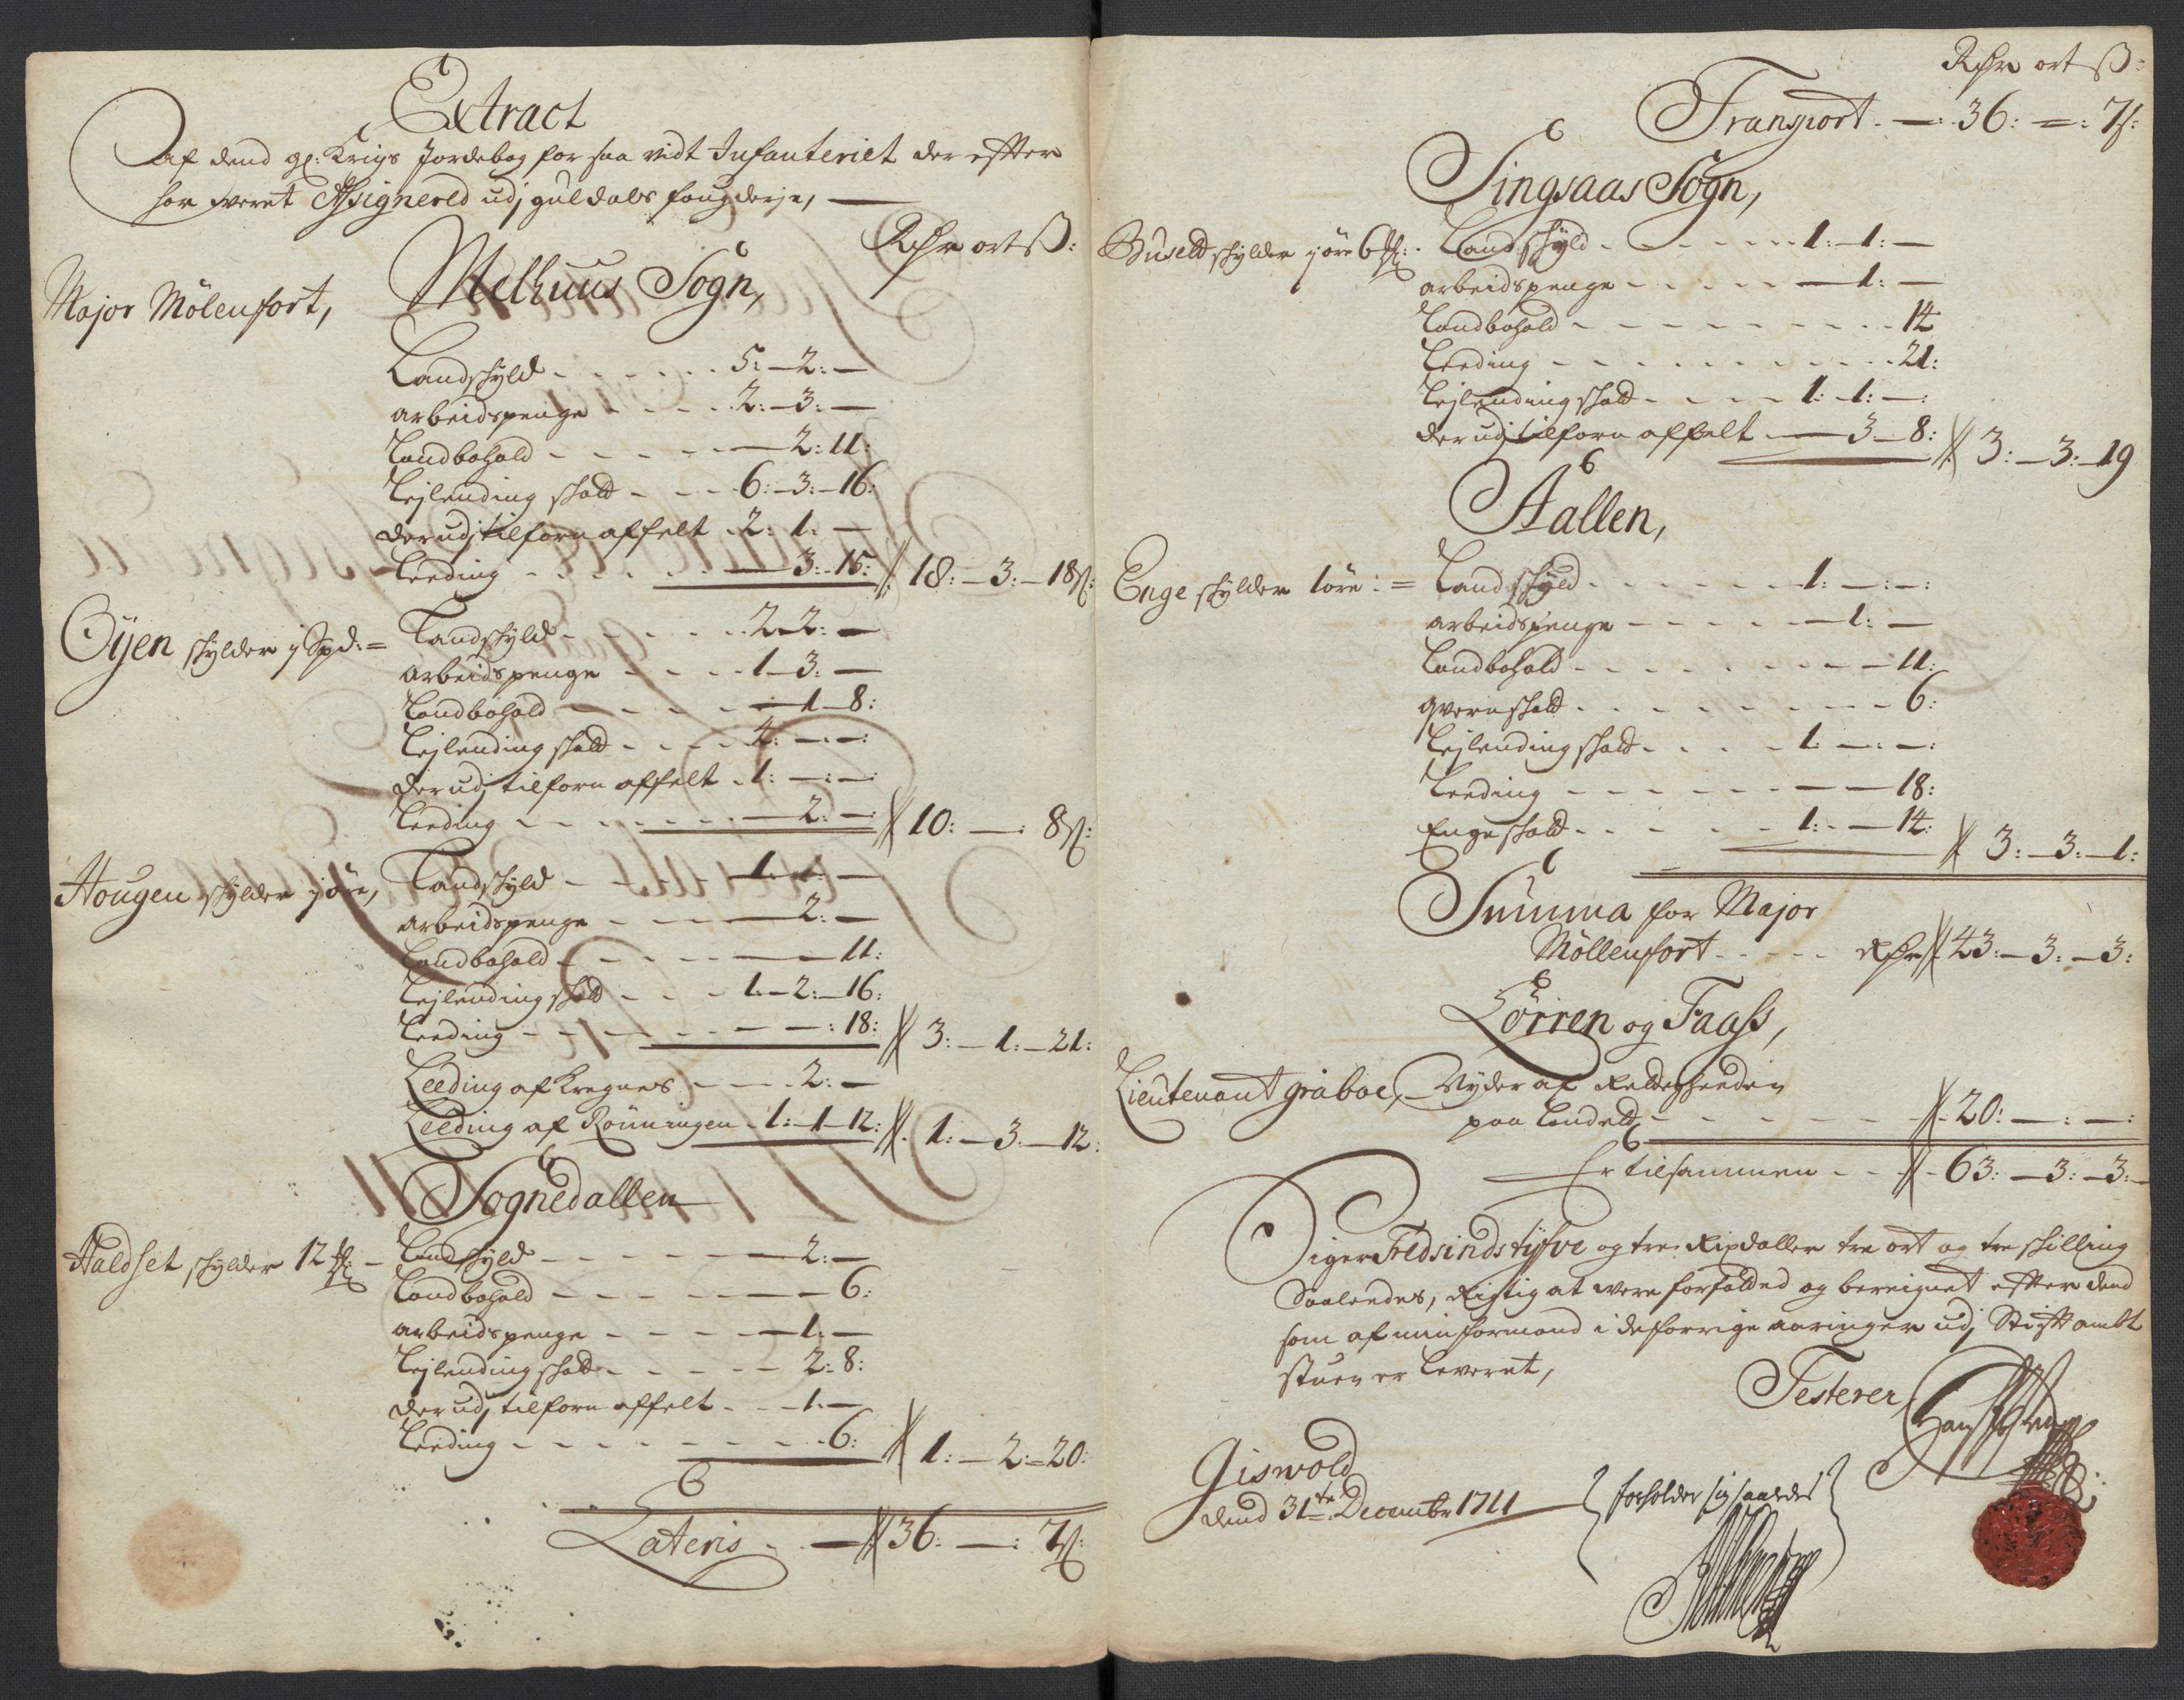 Extract
Af dend gl: Krigs Jordebog for saa vidt Infanteriet der efter
har weret Assignered udj Guldals fougderje,
Rdr ort ß:
Major Mölenfort, Melhuus Sogn,
Landskyld - - - - - 5: - 2: -
arbeidspenge - - - - 2: - 3: -
Landbohold - - - - - 2: 11:
Leilending skatt - - - 6: - 3: - 16:
der udj tilforn affelt - 2: 1: -
Leeding - - - - - 3: - 15: // 18: - 3: - 18ß:
Öyen skylder j Spd: = Landskyld - - - - - 2 2: -
arbeidspenge - - - - 1 - 3: -
Landbohold - - - - 1 - 8:
Leilending skatt - - - 4: - : - :
der udj tilforn affelt - 1: - : - :
Leeding - - - - - 2: - // 10: - : 8ß:
Hougen skylder j öre, Landskyld - - - - 1: 1: -
arbeidspenge - - - - 2: -
Landbohold - - - - 11:
Leilending skatt - - - 1: - 2: - 16:
Leeding - - - - - - : 18: // 3: - 1: - 21:
Leeding af Kregnes - - - 2: -
Leeding af Rönningen - 1: - 1 - 12: // 1: - 3: - 12:
Sognedallen
Haldset skylder 12 - Landskyld - - - - 2: -
Landbohold - - - - - 6:
arbeidspenge - - - - 1: -
Leilending skatt - - - - 2: 8:
der udj tilforn affelt - - 1: -
Leeding - - - - - - 6: // 1: - 2: = 20:
Lateris - - // 36: - : 7ß:
Rdr ort ß:
Transport - 36: = : 7ß:
Singsaas Sogn,
Busett skylder j öre 6 : - Landskyld - - - - - 1: - 1: -
arbeidspenge - - - - - 1: -
Landbohold - - - - - - - 14
Leeding - - - - - - - 21:
Leilending skatt - - - - 1: - 1: - :
der udj tilforn affelt - 3 - 8: // 3: - 3: - 19
Aallen,
Enge skylder 1 öre: = Landskyld - - - - - 1: - : - :
arbeidspenge - - - - - 1: -
Landbohold - - - - - - - 11:
qvernskatt - - - - - - - 6:
Leilending skatt - - - - 1: - : - :
Leeding - - - - - - - 18:
Engeskatt - - - - - 1: - 14: // 3: - 3: - 1:
Summa for Major
Möllenfort - - - - Rdr // 43: - 3: - 3:
Lörren og Faass,
Lieutenant Graboe, Nyder af
paa - - - - - // 20: - : - :
Er tilsammen - - // - 63: - 3: - 3: -
Siger Tredsindstyfve og tre Rixdaller tre ort og tre skilling
Saaleedes, Rigtig at were forfalded og bereignet efter dend
som af min formand i de forrige aaringer udj Stiftambt
stuen er leveret,
Testerer
Giswold
dend 31te Decembr 1711
forholder sig saaledes